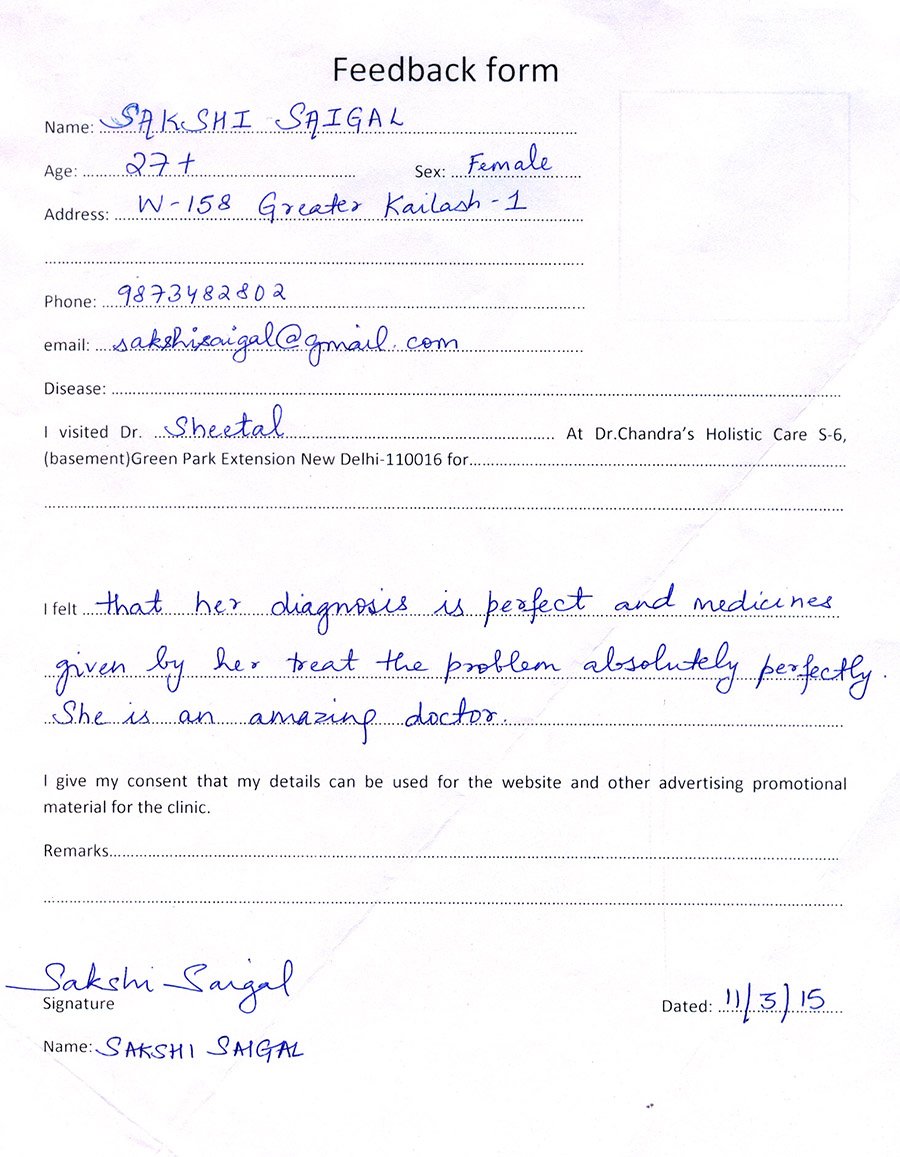 Feedback form
Name: SAKSHI SAIGAL
Age: 27+ Sex: Female
Address: W-158 Greater Kailash-1
Phone: 9873482802
email: sakshisaigal@gmail.com
Disease:
I visited Dr. Sheetal At Dr.Chandra's Holistic Care S-6,
(basement)Green Park Extension New Delhi-110016 for
I felt that her diagnosis is perfect and medicines
given by her treat the problem absolutely perfectly.
She is an amazing doctor.
I give my consent that my details can be used for the website and other advertising promotional
material for the clinic.
Remarks
Sakshi Saigal
Signature Dated: 11/3/15
Name: SAKSHI SAIGAL